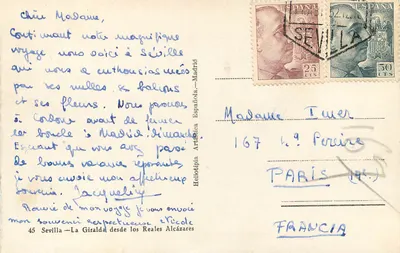 Chère Madame,
Continuant notre magnifique
voyage nous voici à Séville
qui nous a enthousiasmées
par ses ruelles, ses balcons
et ses fleurs. Nous passons
à Cordoue avant de fermer
la boucle à Madrid dimanche.
que vous avez passé
de bonnes vacances
je vous envoie mon affectueux
souvenir. Jacqueline
Ravie de mon voyage je vous envoie
mon souvenir respectueux Nicole
45 Sevilla—La Giralda desde los Reales Alcázares
Heliotipia Artística Española.—Madrid
ESPAÑA
25
CTS
ESPAÑA
50
CTS
SEVILLA
Madame
167 Pereire
PARIS
FRANCIA